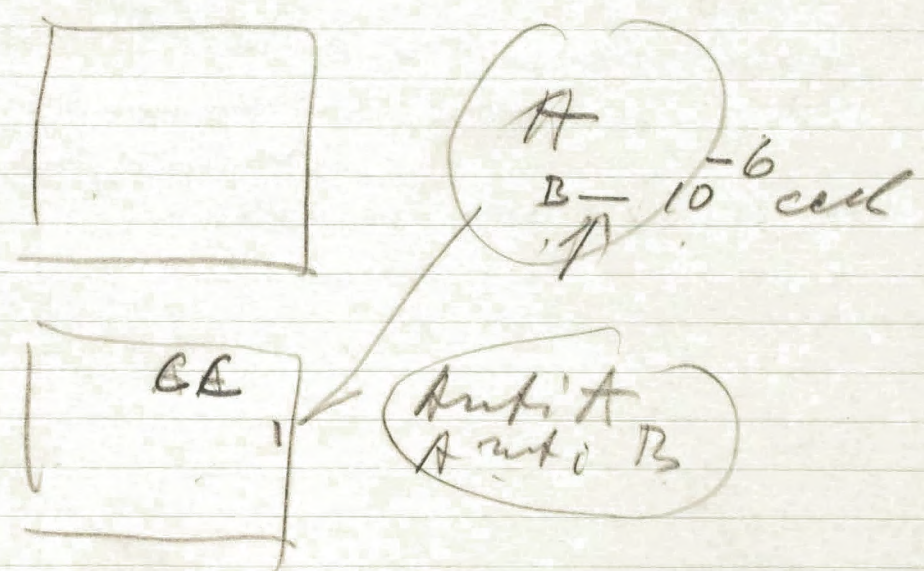 A
B — 10⁻⁶ cell
Anti A
Anti B